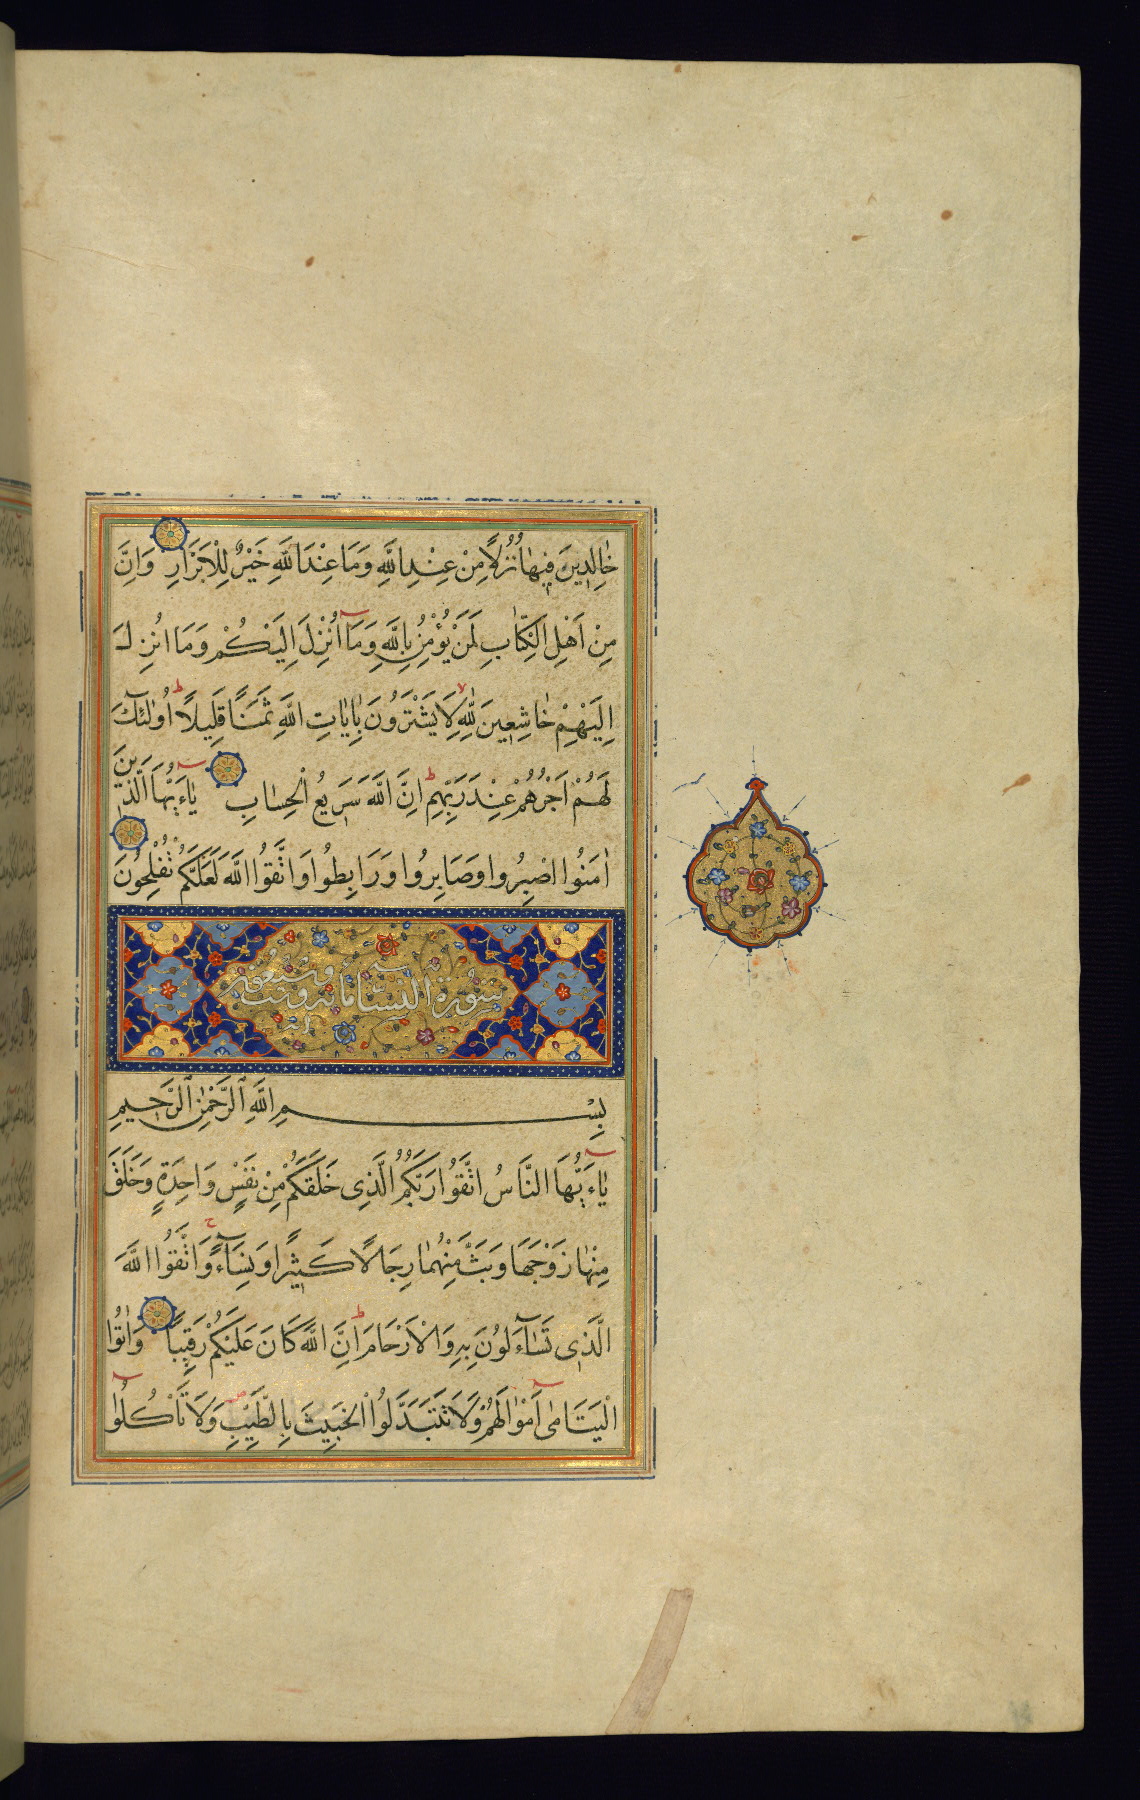 خَالِدِينَ فِيهَا نُزُلًا مِنْ عِنْدِ اللَّهِ وَمَا عِنْدَ اللَّهِ خَيْرٌ لِلْأَبْرَارِ وَاِنَّ
مِنْ اَهْلِ الْكِتَابِ لَمَنْ يُؤْمِنُ بِاللَّهِ وَمَا اُنْزِلَ اِلَيْكُمْ وَمَا اُنْزِلَ
اِلَيْهِمْ خَاشِعِينَ لِلَّهِ لَا يَشْتَرُونَ بِاٰيَاتِ اللَّهِ ثَمَنًا قَلِيلًا اُولٰئِكَ
لَهُمْ اَجْرُهُمْ عِنْدَ رَبِّهِمْ اِنَّ اللَّهَ سَرِيعُ الْحِسَابِ يَاءَيُّهَا الَّذِينَ
اٰمَنُوا اصْبِرُوا وَصَابِرُوا وَرَابِطُوا وَاتَّقُوا اللَّهَ لَعَلَّكُمْ تُفْلِحُونَ
سورة النساء مائة وست وسبعون
بِسْمِ اللَّهِ الرَّحْمٰنِ الرَّحِيمِ
يَاءَيُّهَا النَّاسُ اتَّقُوا رَبَّكُمُ الَّذِي خَلَقَكُمْ مِنْ نَفْسٍ وَاحِدَةٍ وَخَلَقَ
مِنْهَا زَوْجَهَا وَبَثَّ مِنْهُمَا رِجَالًا كَثِيرًا وَنِسَاءً وَاتَّقُوا اللَّهَ
الَّذِي تَسَاءَلُونَ بِهِ وَالْاَرْحَامَ اِنَّ اللَّهَ كَانَ عَلَيْكُمْ رَقِيبًا وَاٰتُوا
الْيَتَامٰى اَمْوَالَهُمْ وَلَا تَتَبَدَّلُوا الْخَبِيثَ بِالطَّيِّبِ وَلَا تَأْكُلُوا